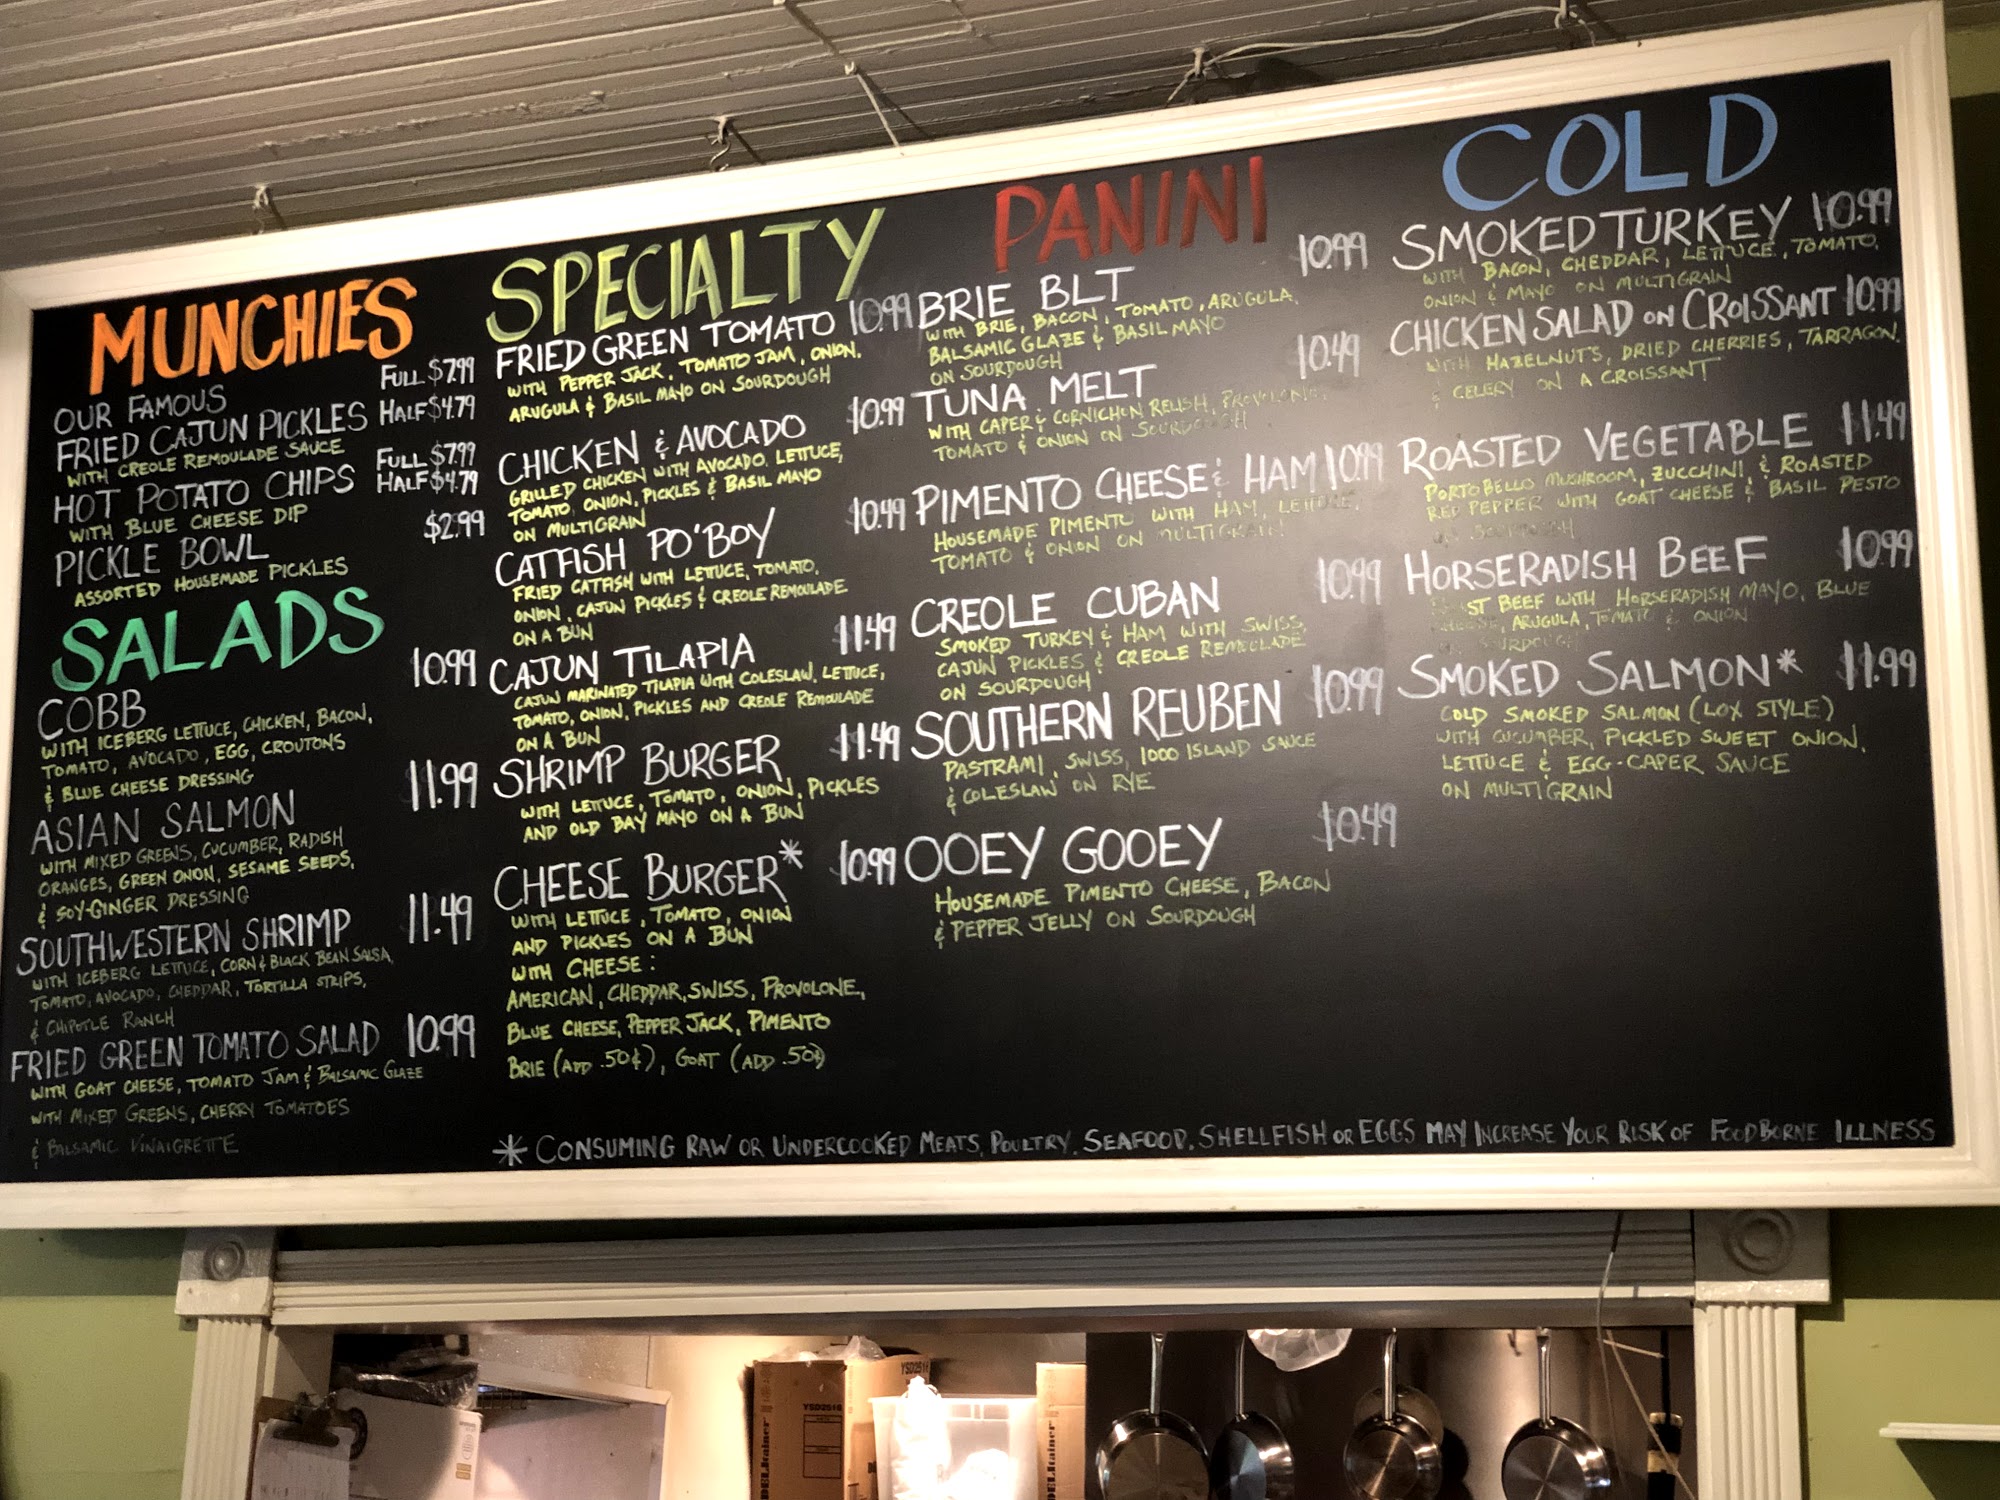 MUNCHIES
OUR FAMOUS
FRIED CAJUN PICKLES
FULL $7.99
HALF $4.79
WITH CREOLE REMOULADE SAUCE
HOT POTATO CHIPS
FULL $7.99
HALF $4.79
WITH BLUE CHEESE DIP
PICKLE BOWL $2.99
ASSORTED HOUSEMADE PICKLES
SALADS
COBB 10.99
WITH ICEBERG LETTUCE, CHICKEN, BACON,
TOMATO, AVOCADO, EGG, CROUTONS
& BLUE CHEESE DRESSING
ASIAN SALMON 11.99
WITH MIXED GREENS, CUCUMBER, RADISH
ORANGES, GREEN ONION, SESAME SEEDS,
& SOY-GINGER DRESSING
SOUTHWESTERN SHRIMP 11.49
WITH ICEBERG LETTUCE, CORN & BLACK BEAN SALSA,
TOMATO, AVOCADO, CHEDDAR, TORTILLA STRIPS,
& CHIPOTLE RANCH
FRIED GREEN TOMATO SALAD 10.99
WITH GOAT CHEESE, TOMATO JAM & BALSAMIC GLAZE
WITH MIXED GREENS, CHERRY TOMATOES
& BALSAMIC VINAIGRETTE
SPECIALTY
FRIED GREEN TOMATO 10.99
WITH PEPPER JACK, TOMATO JAM, ONION,
ARUGULA & BASIL MAYO ON SOURDOUGH
CHICKEN & AVOCADO 10.99
GRILLED CHICKEN WITH AVOCADO, LETTUCE,
TOMATO, ONION, PICKLES & BASIL MAYO
ON MULTIGRAIN
CATFISH PO'BOY 10.99
FRIED CATFISH WITH LETTUCE, TOMATO,
ONION, CAJUN PICKLES & CREOLE REMOULADE
ON A BUN
CAJUN TILAPIA 11.49
CAJUN MARINATED TILAPIA WITH COLESLAW, LETTUCE,
TOMATO, ONION, PICKLES AND CREOLE REMOULADE
ON A BUN
SHRIMP BURGER 11.49
WITH LETTUCE, TOMATO, ONION, PICKLES
AND OLD BAY MAYO ON A BUN
CHEESE BURGER* 10.99
WITH LETTUCE, TOMATO, ONION
AND PICKLES ON A BUN
WITH CHEESE:
AMERICAN, CHEDDAR, SWISS, PROVOLONE,
BLUE CHEESE, PEPPER JACK, PIMENTO
BRIE (ADD .50¢), GOAT (ADD .50¢)
PANINI
BRIE BLT 10.99
WITH BRIE, BACON, TOMATO, ARUGULA,
BALSAMIC GLAZE & BASIL MAYO
ON SOURDOUGH
TUNA MELT 10.49
WITH CAPER & CORNICHON RELISH, PROVOLONE,
TOMATO & ONION ON SOURDOUGH
PIMENTO CHEESE & HAM 10.99
HOUSEMADE PIMENTO WITH HAM, LETTUCE,
TOMATO & ONION ON MULTIGRAIN
CREOLE CUBAN 10.99
SMOKED TURKEY & HAM WITH SWISS,
CAJUN PICKLES & CREOLE REMOULADE
ON SOURDOUGH
SOUTHERN REUBEN 10.99
PASTRAMI, SWISS, 1000 ISLAND SAUCE
& COLESLAW ON RYE
OOEY GOOEY 10.49
HOUSEMADE PIMENTO CHEESE, BACON
& PEPPER JELLY ON SOURDOUGH
COLD
SMOKED TURKEY 10.99
WITH BACON, CHEDDAR, LETTUCE, TOMATO,
ONION & MAYO ON MULTIGRAIN
CHICKEN SALAD ON CROISSANT 10.99
WITH HAZELNUTS, DRIED CHERRIES, TARRAGON,
& CELERY ON A CROISSANT
ROASTED VEGETABLE 11.49
PORTOBELLO MUSHROOM, ZUCCHINI, & ROASTED
RED PEPPER WITH GOAT CHEESE & BASIL PESTO
ON SOURDOUGH
HORSERADISH BEEF 10.99
ROAST BEEF WITH HORSERADISH MAYO, BLUE
CHEESE, ARUGULA, TOMATO & ONION
ON SOURDOUGH
SMOKED SALMON* $11.99
COLD SMOKED SALMON (LOX STYLE)
WITH CUCUMBER, PICKLED SWEET ONION,
LETTUCE & EGG-CAPER SAUCE
ON MULTIGRAIN
* CONSUMING RAW OR UNDERCOOKED MEATS, POULTRY, SEAFOOD, SHELLFISH OR EGGS MAY INCREASE YOUR RISK OF FOODBORNE ILLNESS
YSD2516